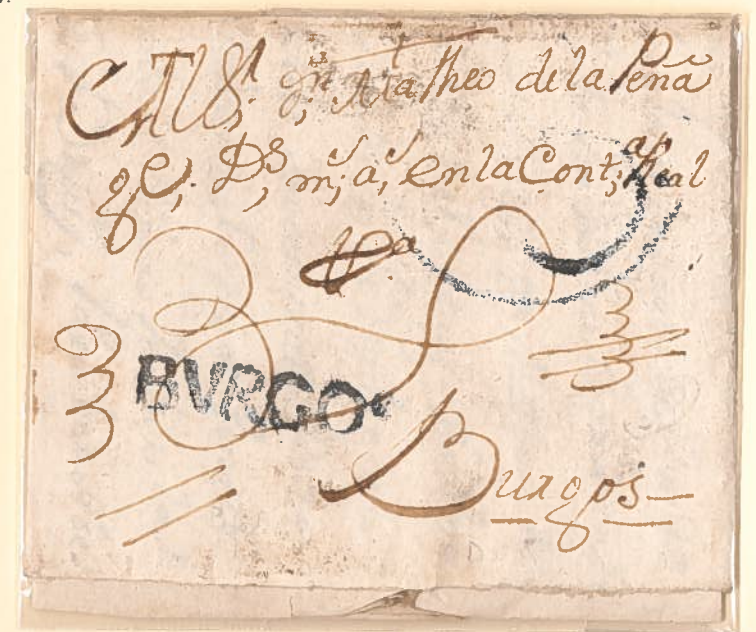 Matheo de la Peña
ge, Ds, m; a, en la Cont,a Real
BVRGOS
Burgos